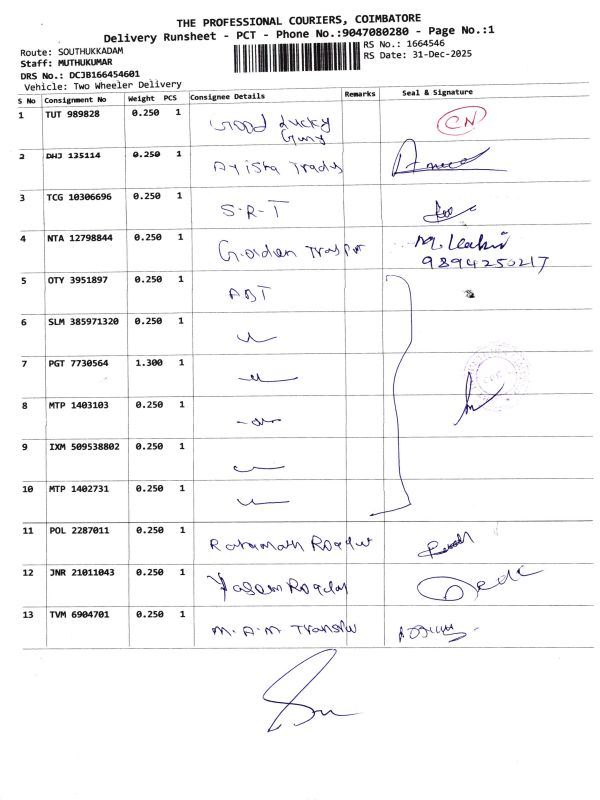 THE PROFESSIONAL COURIERS, COIMBATORE
Delivery Runsheet - PCT - Phone No.:9047080280 - Page No.:1
Route: SOUTHUKKADAM
RS No.: 1664546
Staff: MUTHUKUMAR
RS Date: 31-Dec-2025
DRS No.: DCJB166454601
Vehicle: Two Wheeler Delivery
S No Consignment No Weight PCS Consignee Details Remarks Seal & Signature
1 TUT 989828 0.250 1 Good Lucky CN
2 DHJ 135114 0.250 1 Traders
3 TCG 10306696 0.250 1 S.R.T
4 NTA 12798844 0.250 1 Golden
9894250217
5 OTY 3951897 0.250 1 ABT
6 SLM 385971320 0.250 1
7 PGT 7730564 1.300 1
8 MTP 1403103 0.250 1
9 IXM 509538802 0.250 1
10 MTP 1402731 0.250 1
11 POL 2287011 0.250 1
12 JNR 21011043 0.250 1
13 TVM 6904701 0.250 1 M.A.M